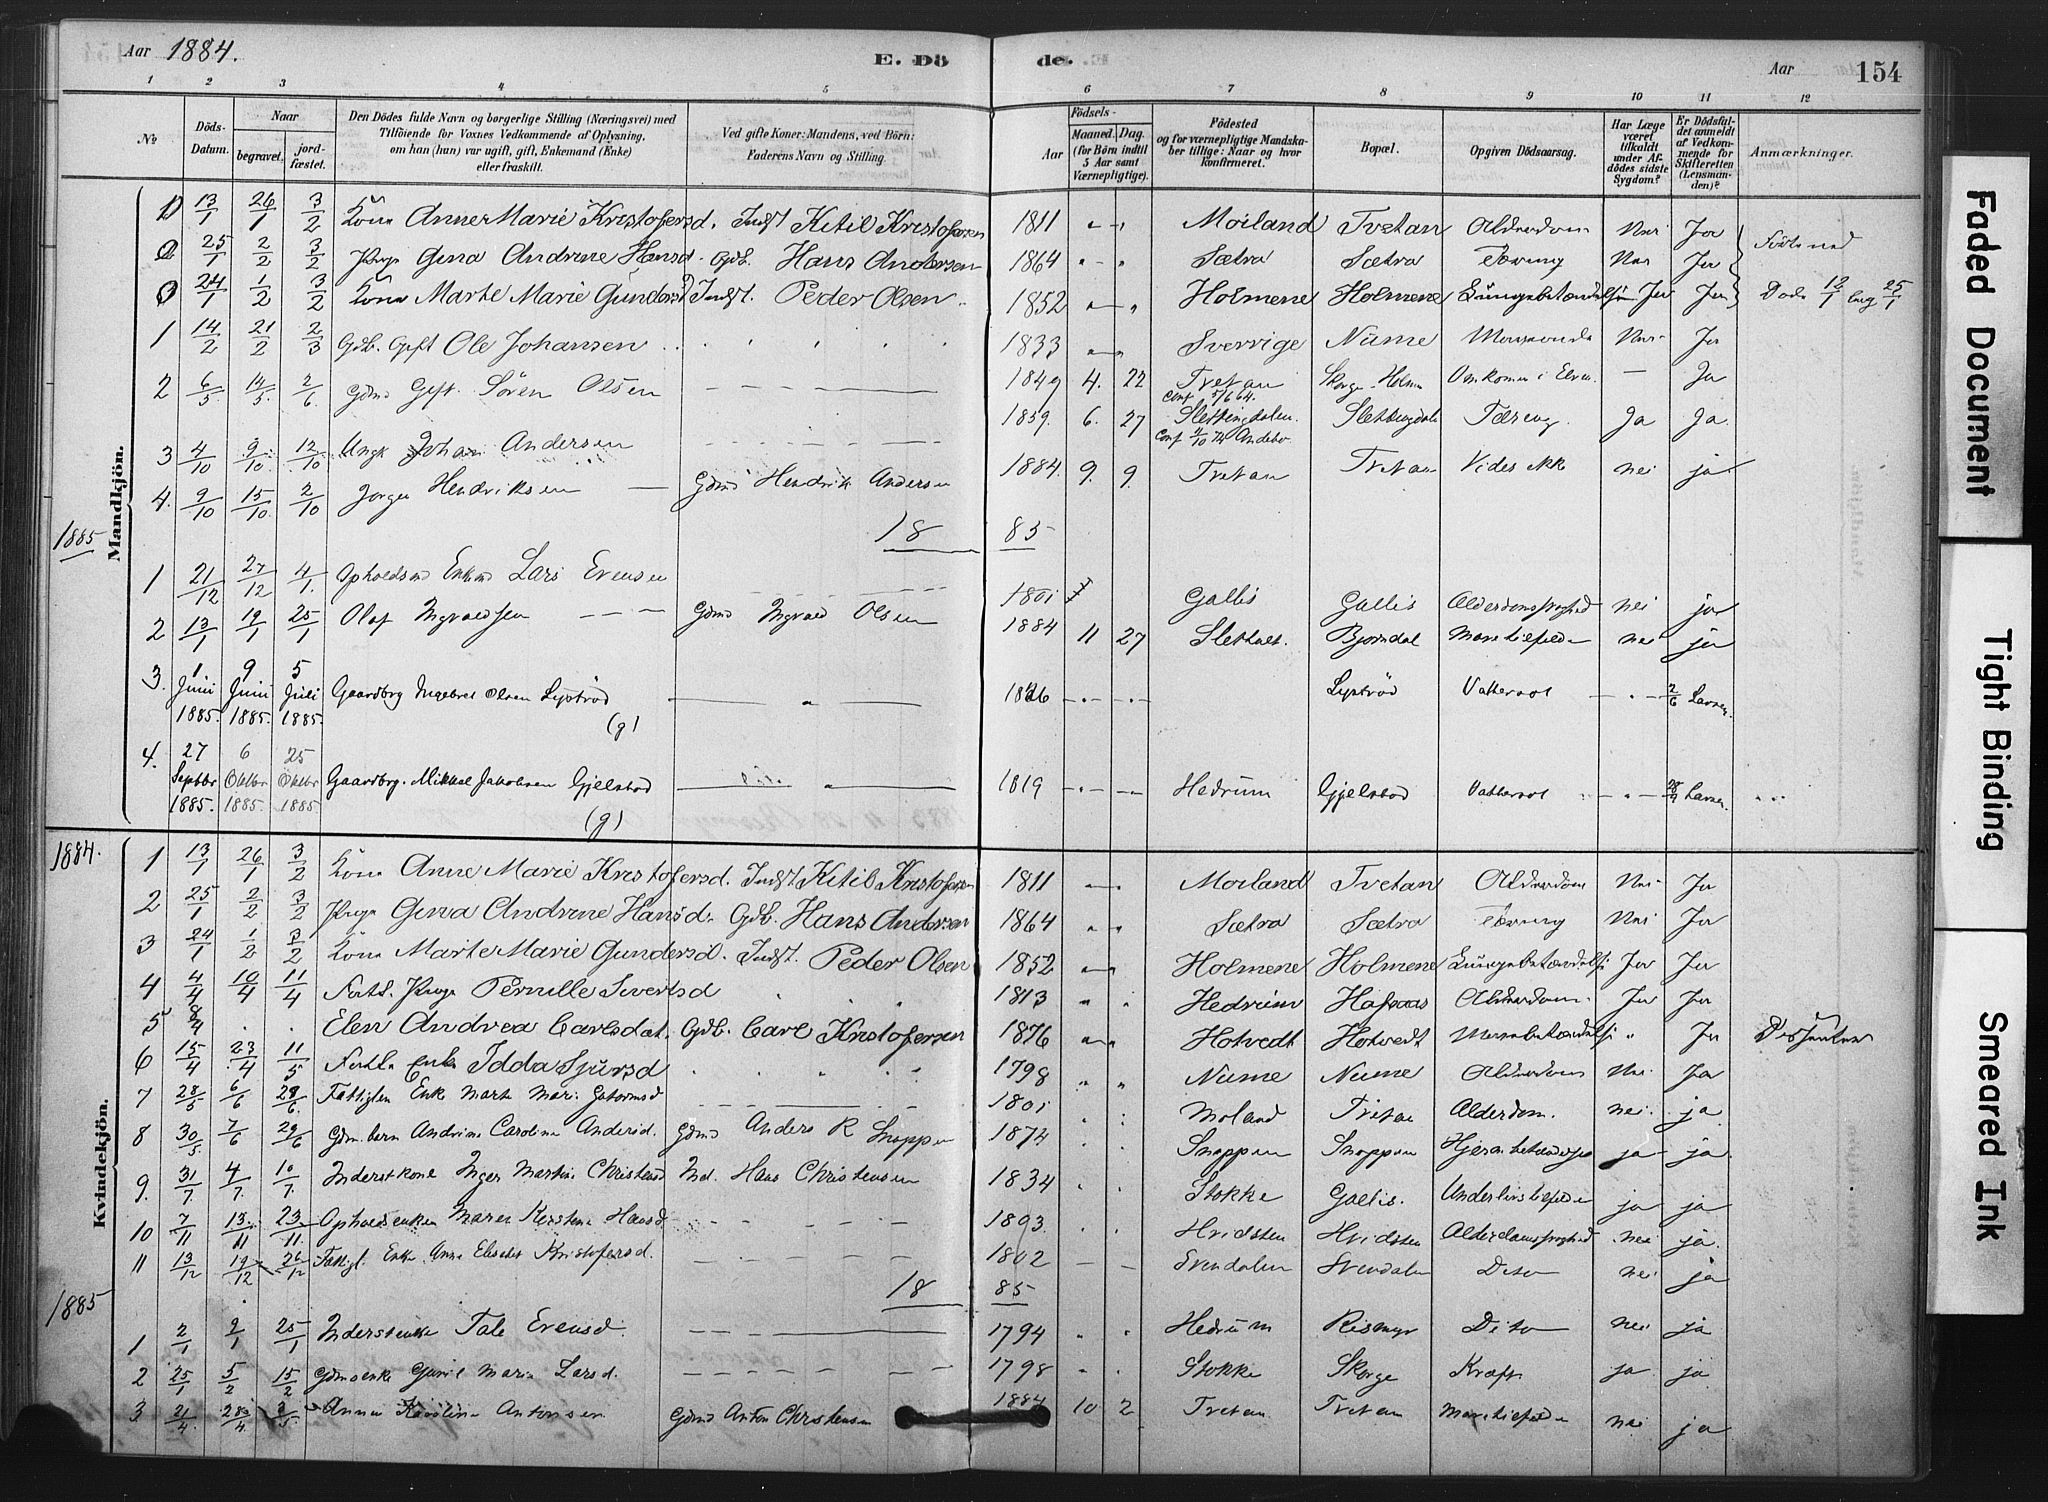 Aar 1884. E. Dö de. Aar 154
1 2 3 4 5 6 7 8 9 10 11 12
No Döds-Datum. Naar begravet. jord-fæstet. Den Dödes fulde Navn og borgerlige Stilling (Næringsvei) med Tilföiende for Voxnes Vedkommende af Oplysning, om han (hun) var ugift, gift, Enkemand (Enke) eller fraskilt. Ved gifte Koner: Mandens, ved Börn: Faderens Navn og Stilling. Födsels- Aar Maaned. Dag. (for Börn indtil 5 Aar samt Værnepligtige). Födested og for værnepligtige Mandska-ber tillige: Naar og hvor konfirmeret. Bopæl. Opgiven Dödsaarsag. Har Læge været tilkaldt under Af-dödes sidste Sygdom? Er Dödsfal-det anmeldt af Vedkom-mende for Skifteretten (Lensman-den)? Anmærkninger.
Mandkjön.
1 13/1 26/1 3/2 Kone Anne Marie Kristofersd. Indst Kitil Kristofersen 1811 Moiland Tvetan Alderdom Nei Ja
2 25/1 2/2 3/2 Pige Gina Andrine Hansd. Gdb. Hans Andersen 1864 Sætra Sætra Tæring Nei Ja
3 24/1 1/2 3/2 Kone Marte Marie Gundersd Indst. Peder Olsen 1852 Holmene Holmene Lungebetændelse Ja Ja Døde 12/1 beg 25/1
1 14/2 21/2 2/3 Gdb. Gift Ole Johansen 1833 Sverrige Nume Nei Ja
2 6/5 14/5 2/6 Gdmd Gift Sören Olsen 1849 4. 22 Tvetan Conf 5/6 64. Skorge Holm Omkommen i Elven — Ja
3 4/10 9/10 12/10 Ungk Johan Andersen 1859. 6. 27 Slettingdalen Conf 4/10 74 Andebo Slettingdalen Tæring Ja Ja
4. 9/10 15/10 2/10 Jorgen Hendriksen — Gdmd Hendrik Andersen 1884. 9. 9. Tvetan Tvetan Vides ikke nei ja
1885 18 85
1 21/12 27/12 4/1. Opholdsmd Enkmd Lars Evensen 1801 Gallis Gallis Alderdomssvaghed nei ja
2 13/1 19/1 25/1 Olaf Ingvaldsen Gdmd Ingvald Olsen 1884 11 27 Slettholt. Bjorndal nei ja
3. 1 Juni 1885. 9 Juni 1885. 5 Juli 1885. Gaardbrg Ingebret Olsen Lystrød (g) 1826 Lystrød Vattersot 2/6 Larsen.
4. 27 Septbr 1885. 6 Oktbr 1885. 25 Oktbr 1885 Gaardbrg. Mikkel Jakobsen Gjelstad (g) 1819 Hedrum Gjelstad Vattersot 28/9 Larsen
1884.
Kvindekjön.
1 13/1 26/1 3/2 Kone Anne Marie Kristofersd. Indst Kitil Kristofersen 1811 Moiland Tvetan Alderdom Nei Ja
2 25/1 2/2 3/2 Pige Gina Andrine Hansd. Gdb. Hans Andersen 1864 Sætra Sætra Tæring Nei Ja
3 24/1 1/2 3/2 Kone Marte Marie Gundersd. Indst. Peder Olsen 1852 Holmene Holmene Lungebetændelse Ja Ja
4 4/4 10/4 11/4 Fattl. Pige Pernille Sivertsd 1813 Hedrum Alderdom Ja Ja
5 8/4 Elen Andrea Carlsdat. Gdb. Carl Kristofersen 1876 Hotvedt Hotvedt Ja Dissenter
6 15/4 23/4 11/5 Fattl. Enke Idda Sjursd 1798 Nume Nume Alderdom Nei Ja
7 28/5 6/6 29/6 Fattiglem Enke Marte Mari Gutormsd 1801 Moland Tvetan Alderdom. nei ja
8 30/5 7/6 29/6 Gdm. barn Andrine Caroline Andersd. Gdmd Anders R Snappen 1874 Snappen Snappen Hjernebetændelse ja ja
9. 31/7 4/7. 10/7. Inderstkone Inger Martine Christensd Ind. Hans Christensen 1834 Stokke Gallis. Underlivslidende ja ja
10 7/11 13/11 23/11. Opholdsenken Maren Kirstine Hansd 1803. Hvidsten Hvidsten Alderdomssvaghed nei ja.
11 13/12 19/12 26/12 Fattigl. Enke Anne Elisabet Kristofersd. 1802 Svendalen Svendalen Dito nei ja
1885 18 85
1 2/1 9/1 25/1 Inderstenke Tale Evensd. 1794 Hedrum Rismyr Dito nei ja
2 25/1 5/2 15/2 Gdmsenke Gunil Maria Larsd. 1798 Stokke Skorge Kræft ja ja
3 21/4 28/4 3/5 Anna Karoline Antonsen Gdmd Anton Christensen 1884 10 2 Tvetan Tvetan nei ja
Faded Document
Tight Binding
Smeared Ink